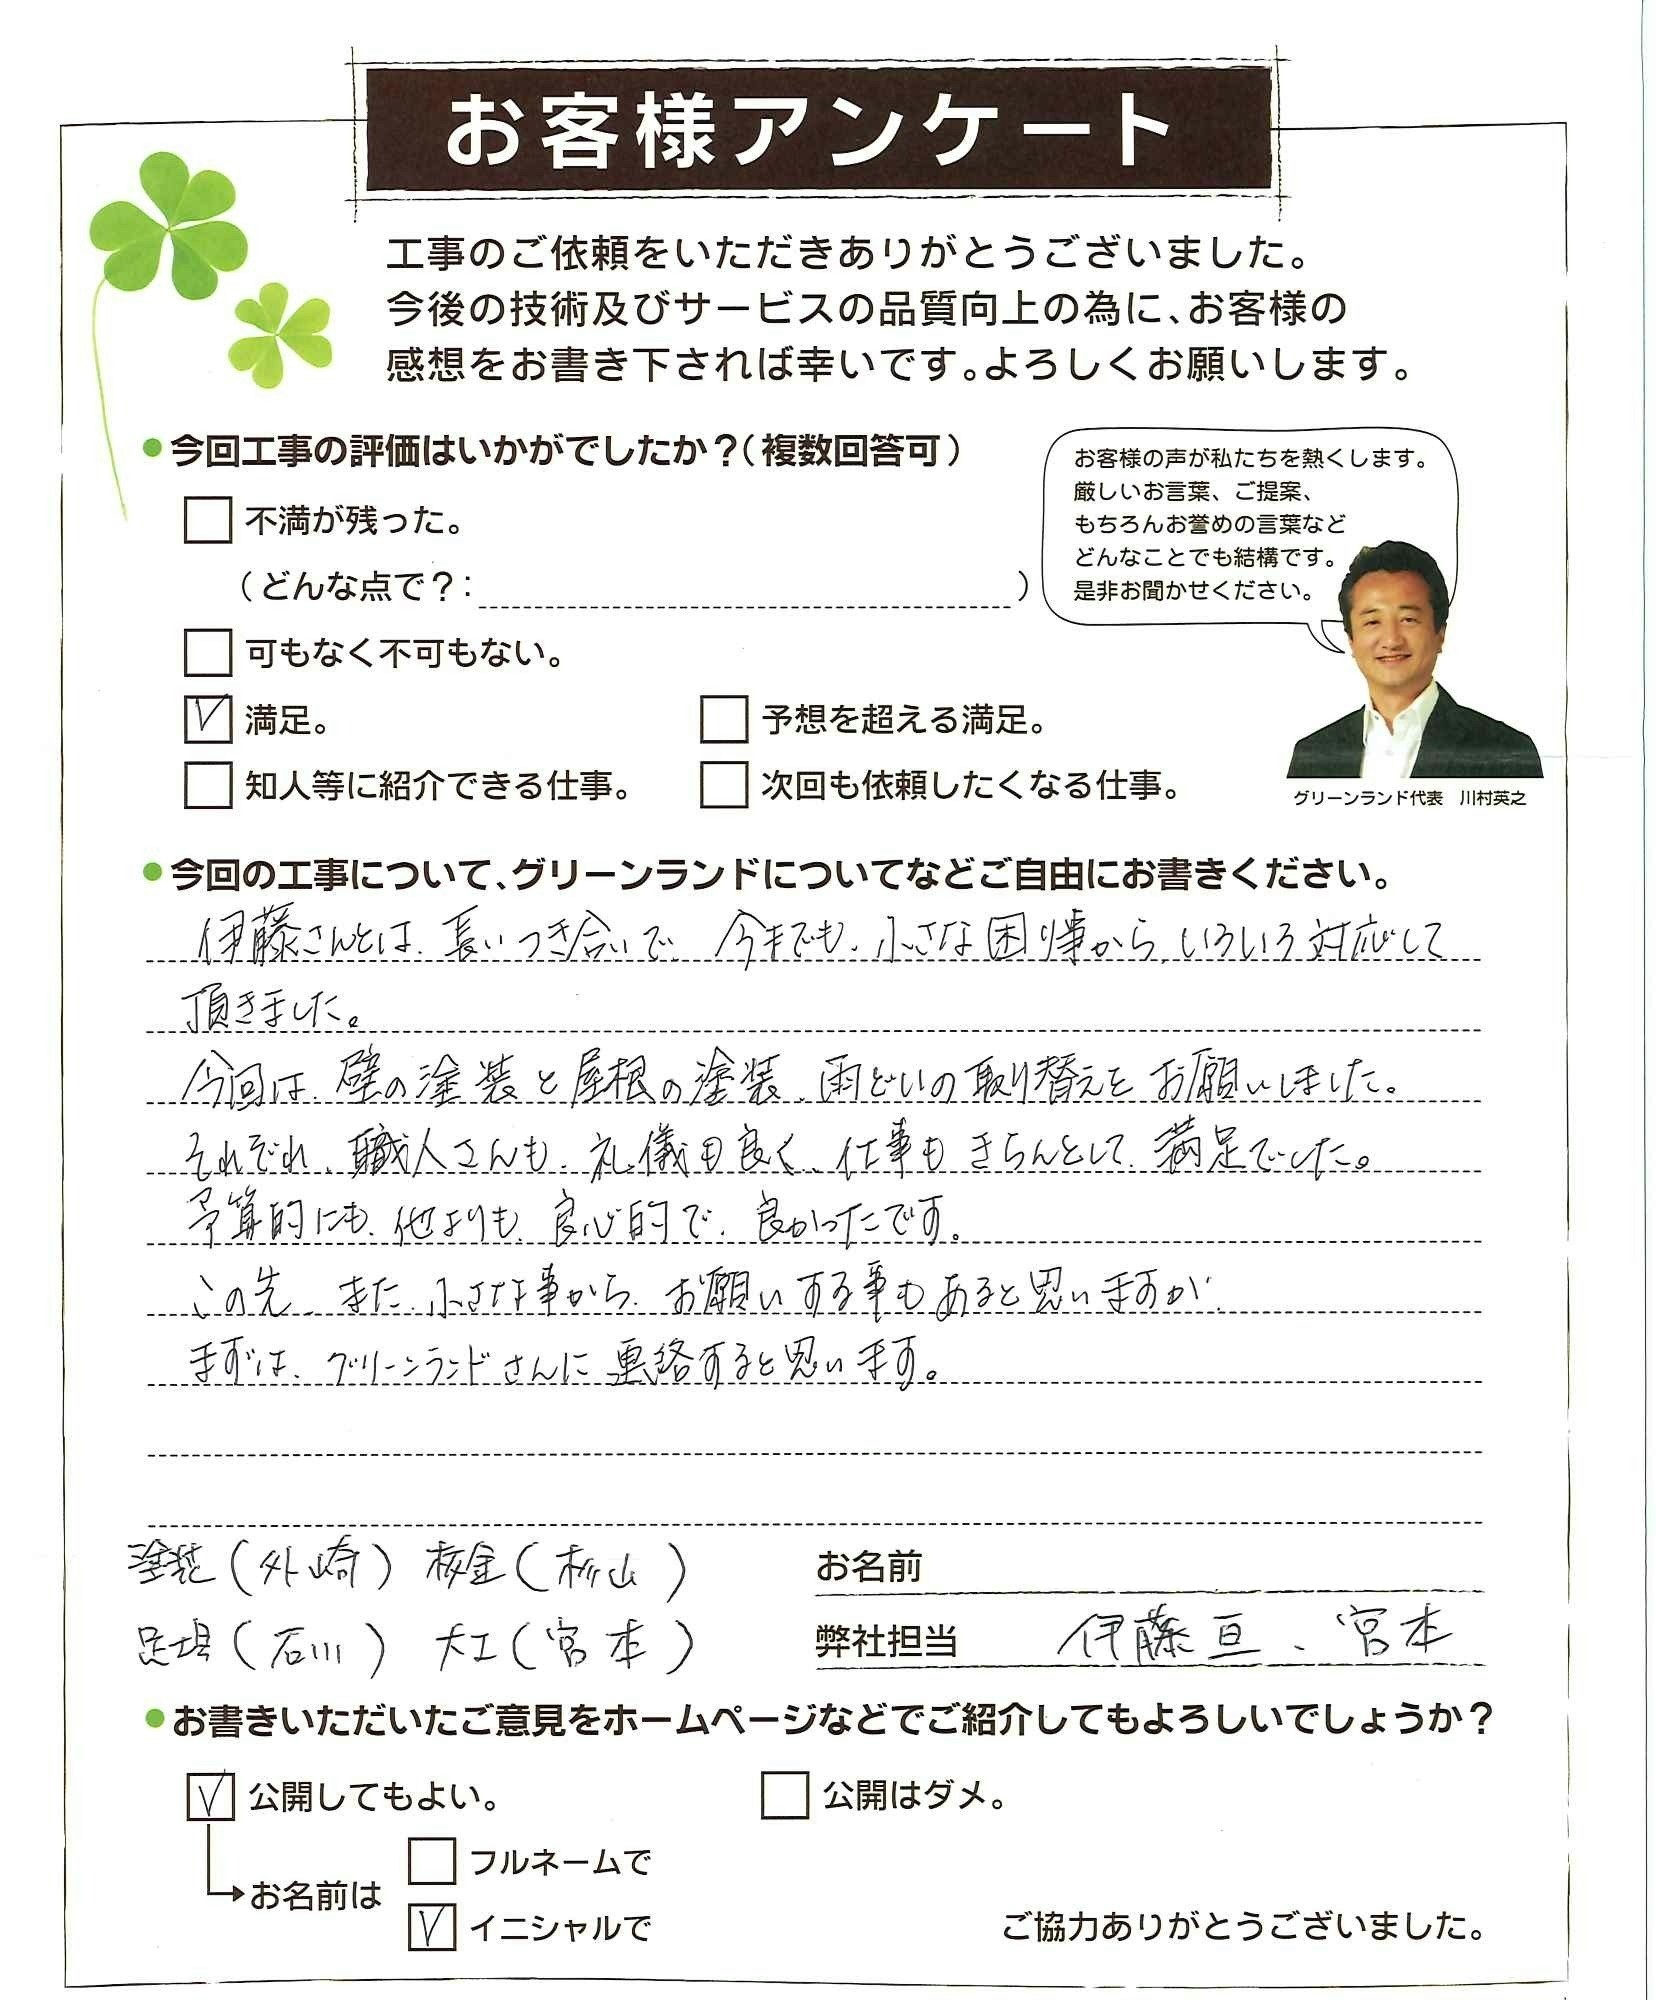 お客様アンケート
工事のご依頼をいただきありがとうございました。
今後の技術及びサービスの品質向上の為に、お客様の
感想をお書き下されば幸いです。よろしくお願いします。
●今回工事の評価はいかがでしたか？（複数回答可）
不満が残った。
（どんな点で？：　）
可もなく不可もない。
満足。
予想を超える満足。
知人等に紹介できる仕事。
次回も依頼したくなる仕事。
お客様の声が私たちを熱くします。
厳しいお言葉、ご提案、
もちろんお誉めの言葉など
どんなことでも結構です。
是非お聞かせください。
グリーンランド代表　川村英之
●今回の工事について、グリーンランドについてなどご自由にお書きください。
伊藤さんとは、長いつき合いで、今までも、小さな困り事から、いろいろ対応して
頂きました。
今回は、壁の塗装と屋根の塗装、雨どいの取り替えをお願いしました。
それぞれ、職人さんも、礼儀も良く、仕事もきちんとして、満足でした。
予算的にも、他よりも、良心的で、良かったです。
この先、また、小さな事から、お願いする事もあると思いますが、
まずは、グリーンランドさんに連絡すると思います。
塗装（外崎）　板金（杉山）
足場（石川）　大工（宮本）
お名前
弊社担当　伊藤亘、宮本
●お書きいただいたご意見をホームページなどでご紹介してもよろしいでしょうか？
公開してもよい。
公開はダメ。
お名前は
フルネームで
イニシャルで
ご協力ありがとうございました。